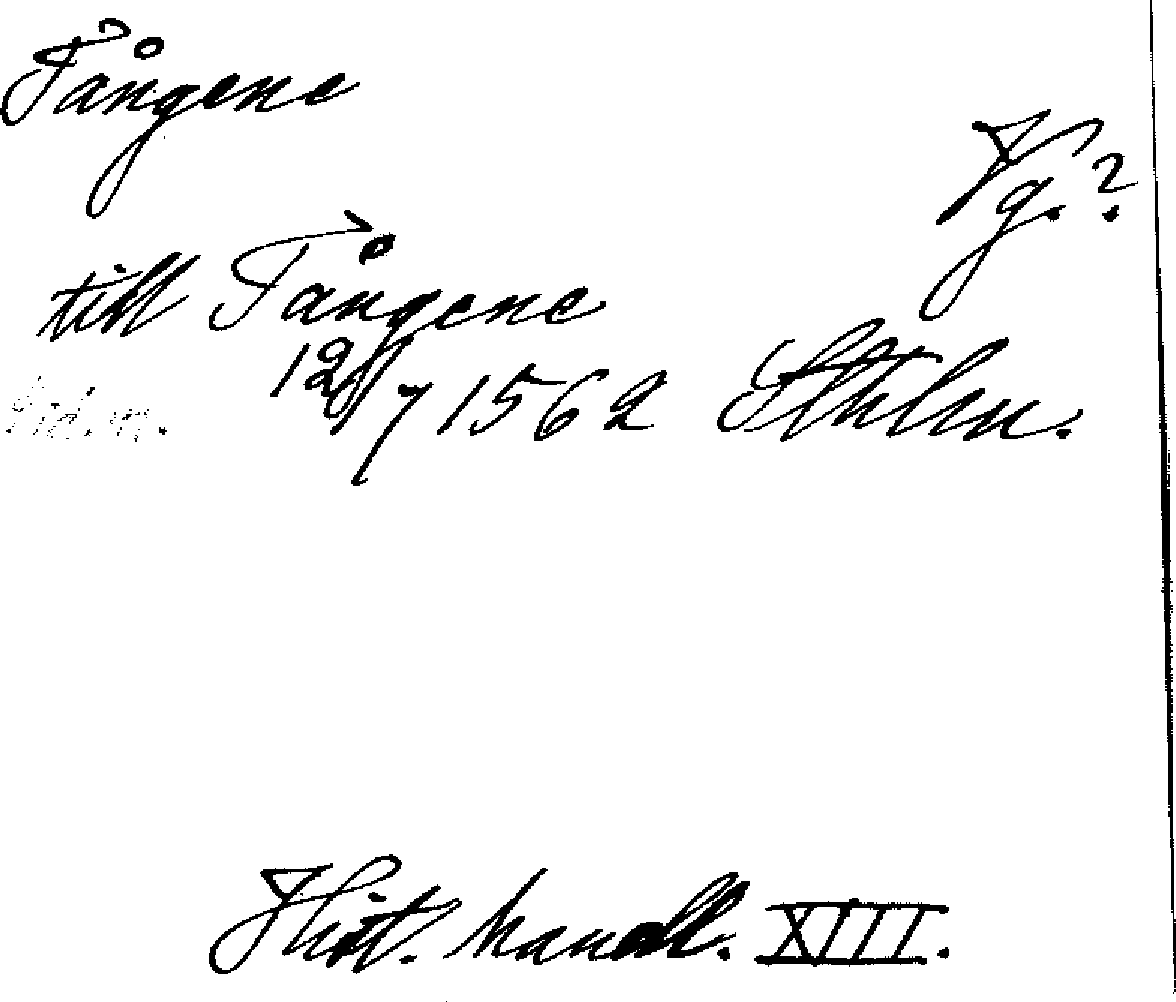 Tångene
Vg.?
till Tångene
12/7 1562 Sthlm.
Hist. handl. XIII.